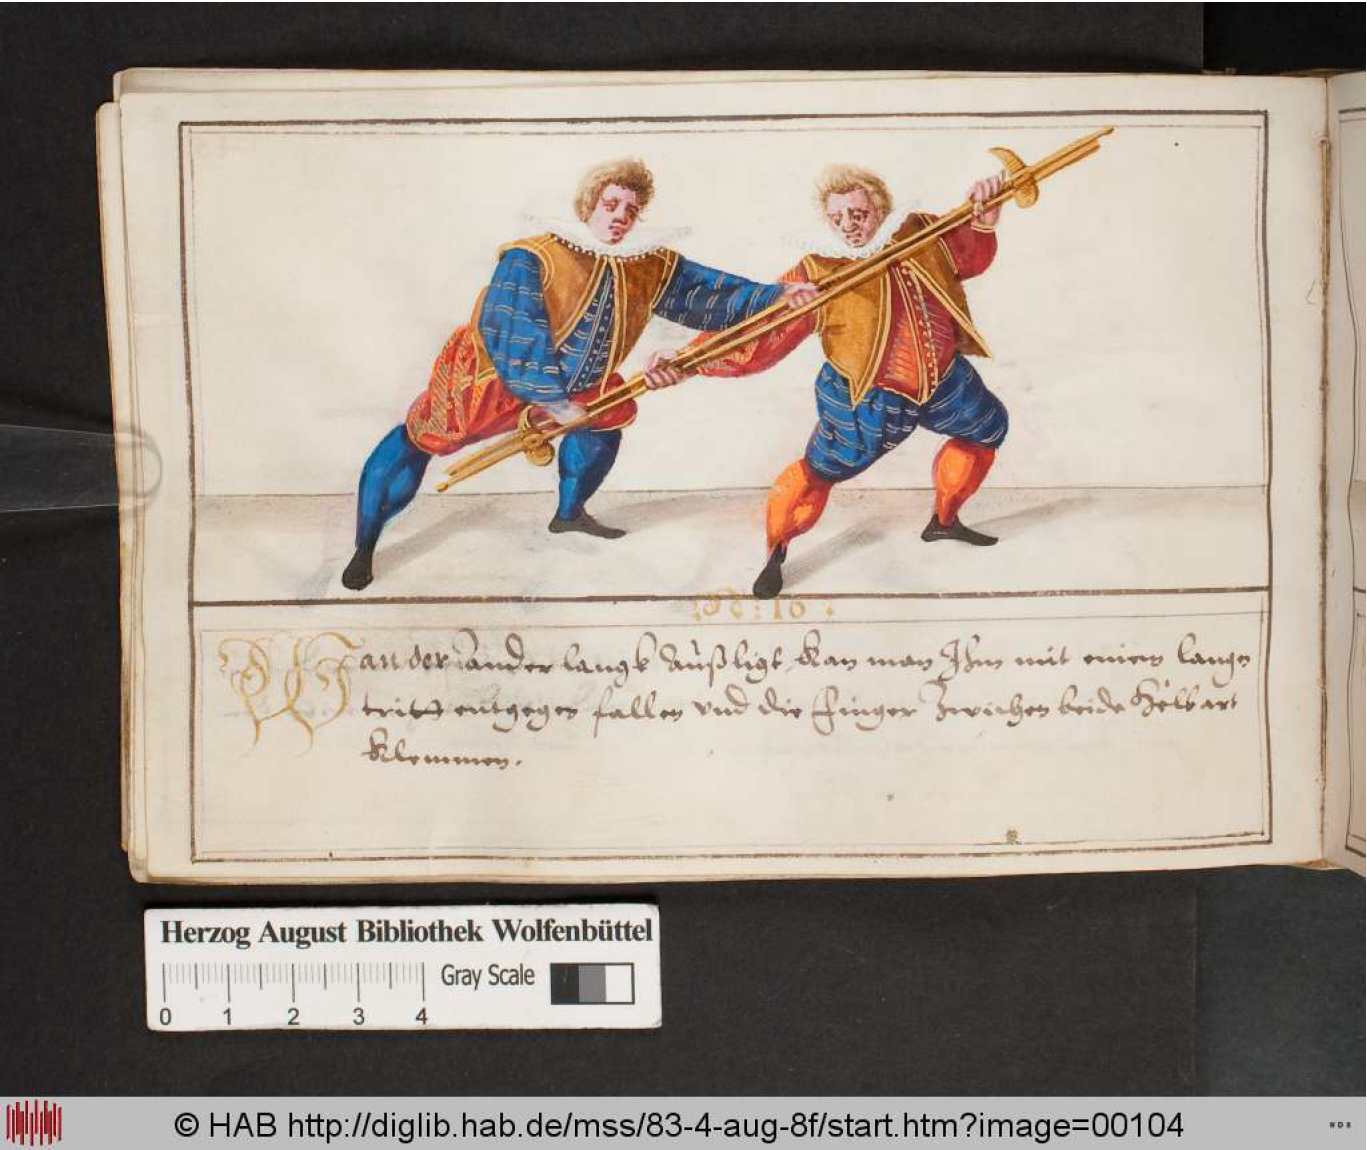 Wan der ander langk außligt kan man Ihm mit einen langen
tritt entgegen fallen vnd die finger zwischen beide Helbart
klemmen.
Herzog August Bibliothek Wolfenbüttel
Gray Scale
0 1 2 3 4
© HAB http://diglib.hab.de/mss/83-4-aug-8f/start.htm?image=00104